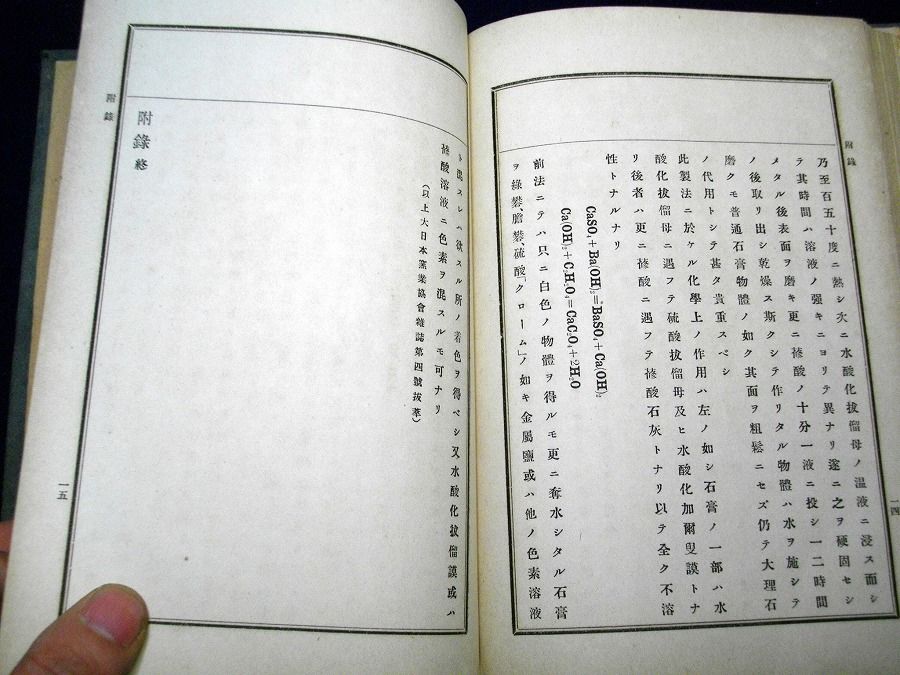 附錄
一四
乃至百五十度ニ熱シ次ニ水酸化拔㑹母ノ温液ニ浸ス面シ
テ其時間ハ溶液ノ强キニヨリテ異ナリ遂ニ之ヲ硬固セシ
メタル後表面ヲ磨キ更ニ蓚酸ノ十分一液ニ投シ一二時間
ノ後取リ出シ乾燥ス斯クシテ作リタル物體ハ水ヲ施シテ
磨クモ普通石膏物體ノ如ク其面ヲ粗鬆ニセズ仍テ大理石
ノ代用トシテ甚タ貴重スベシ
此製法ニ於ケル化學上ノ作用ハ左ノ如シ石膏ノ一部ハ水
酸化拔㑹母ニ遇フテ硫酸拔㑹母及ヒ水酸化加爾叟謨トナ
リ後者ハ更ニ蓚酸ニ遇フテ蓚酸石灰トナリ以テ全ク不溶
性トナルナリ
CaSO₄+Ba(OH)₂=BaSO₄+Ca(OH)₂
Ca(OH)₂+C₂H₂O₄=CaC₂O₄+2H₂O
前法ニテハ只ニ白色ノ物體ヲ得ルモ更ニ奪水シタル石膏
ヲ綠礬、膽礬、硫酸「クローム」ノ如キ金屬鹽或ハ他ノ色素溶液
ト混スレハ欲スル所ノ着色ヲ得ベシ又水酸化拔㑹謨或ハ
蓚酸溶液ニ色素ヲ混スルモ可ナリ
(以上大日本窯業協會雜誌第四號拔萃)
附錄終
附錄
一五